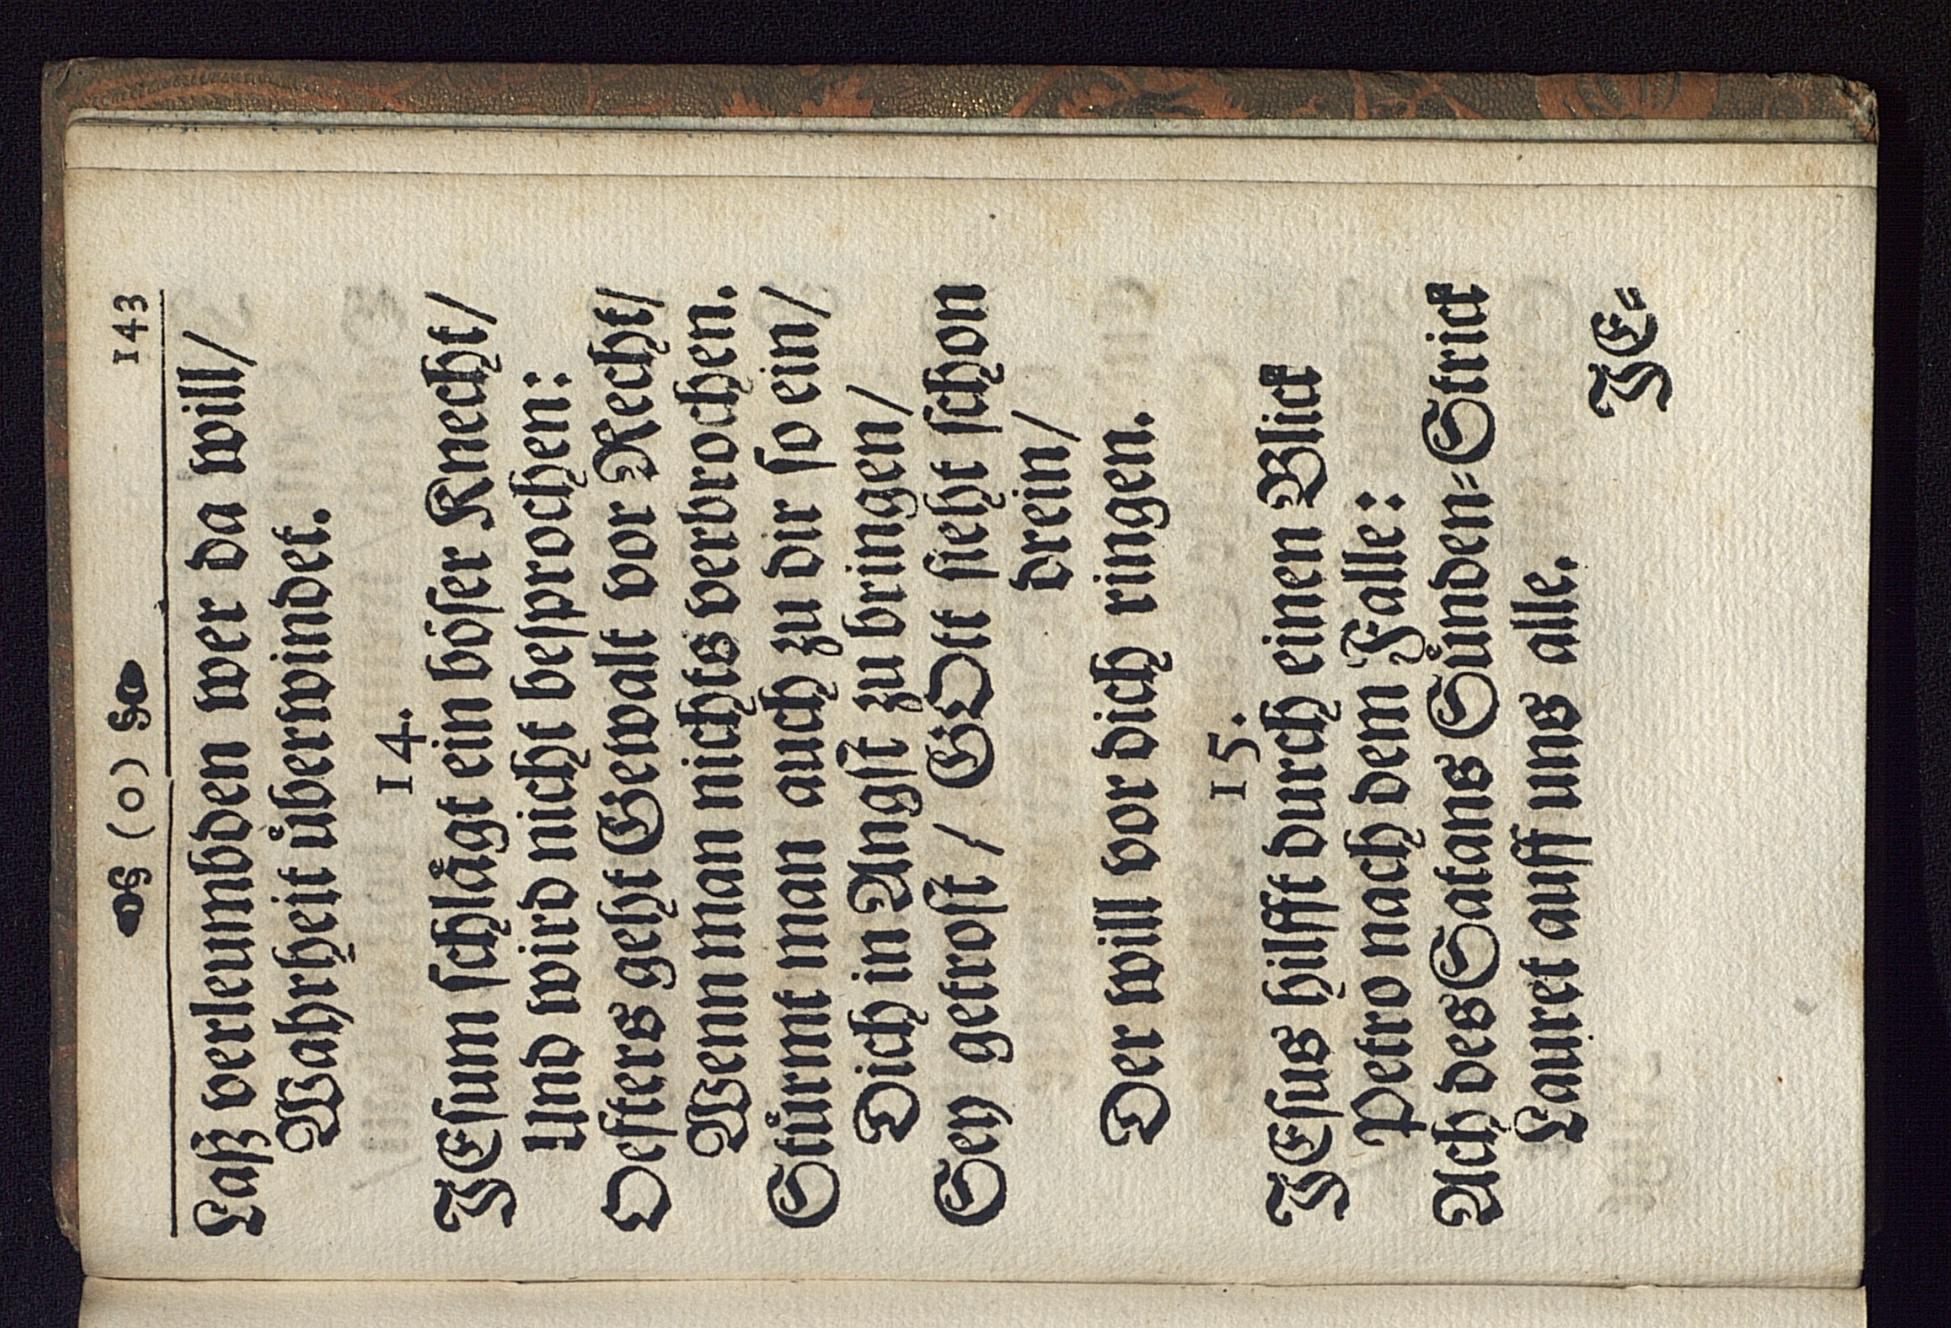 (o) 143
Laſz verleumbden wer da will/
Wahrheit uͤberwindet.
14.
JEſum ſchlaͤgt ein boͤſer Knecht/
Und wird nicht beſprochen:
Oefters geht Gewalt vor Recht/
Wenn man nichts verbrochen.
Stuͤrmt man auch zu dir ſo ein/
Dich in Angſt zu bringen/
Sey getroſt / GOtt ſieht ſchon
drein/
Der will vor dich ringen.
15.
JEſus hilfft durch einen Blick
Petro nach dem Falle:
Ach des Satans Suͤnden-Strick
Lauret auff uns alle.
JE-